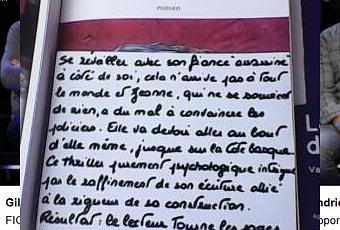 roman
Se réveiller avec son fiancé assassiné
à côté de soi, cela n'arrive pas à tout
le monde et Jeanne, qui ne se souvient
de rien, a du mal à convaincre les
policiers. Elle va devoir aller au bout
d'elle même, jusque sur la Côte basque.
Ce thriller purement psychologique intrigue
par le raffinement de son écriture allié
à la rigueur de sa construction.
Résultat : le lecteur Tourne les pages
Gil
FIG
ndrie